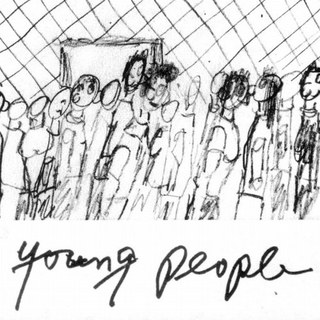 young people